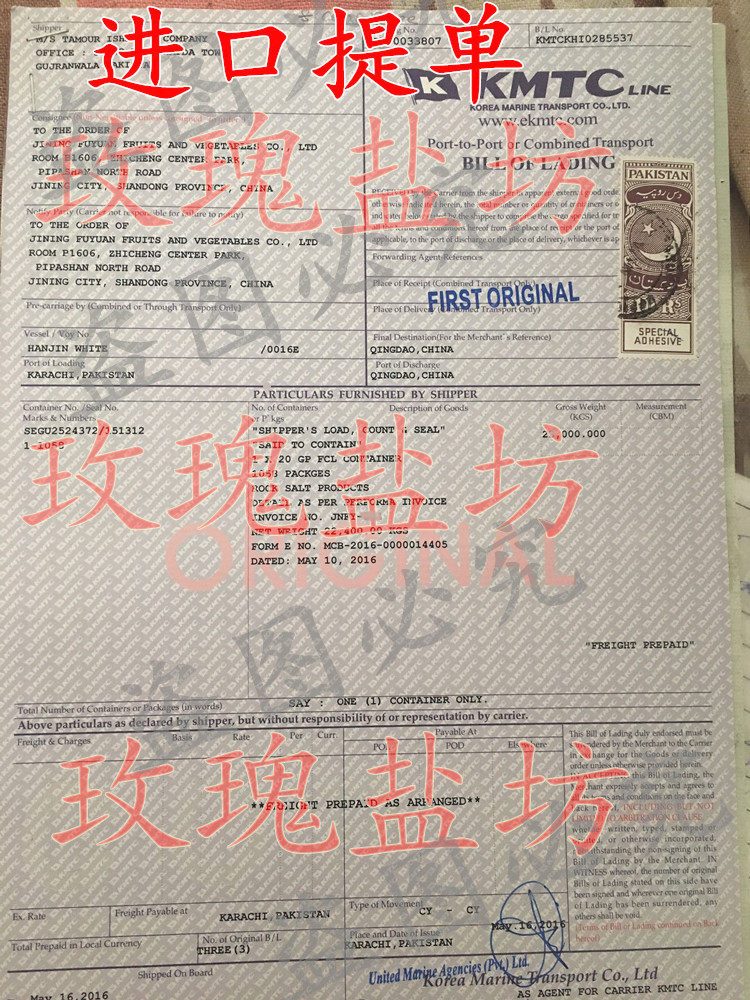 进口提单
Shipper
M/S TAMOUR ISH COMPANY
OFFICE : DA TOW
GUJRANWALA PAKISTAN
0033807
B/L No.
KMTCKHI0285537
KMTC LINE
KOREA MARINE TRANSPORT CO., LTD.
www.ekmtc.com
Port-to-Port or Combined Transport
BILL OF LADING
Consignee (Non-Negotiable unless consigned to order)
TO THE ORDER OF
JINING FUYUAN FRUITS AND VEGETABLES CO., LTD
ROOM P1606, ZHICHENG CENTER PARK,
PIPASHAN NORTH ROAD
JINING CITY, SHANDONG PROVINCE, CHINA
玫瑰盐坊
PAKISTAN
SPECIAL
ADHESIVE
Notify Party (Carrier not responsible for failure to notify)
TO THE ORDER OF
JINING FUYUAN FRUITS AND VEGETABLES CO., LTD
ROOM P1606, ZHICHENG CENTER PARK,
PIPASHAN NORTH ROAD
JINING CITY, SHANDONG PROVINCE, CHINA
盗图必究
Forwarding Agent-References
Place of Receipt (Combined Transport Only)
FIRST ORIGINAL
Pre-carriage by (Combined or Through Transport Only)
Place of Delivery (Combined Transport Only)
Vessel / Voy No
HANJIN WHITE /0016E
Final Destination(For the Merchant's Reference)
QINGDAO,CHINA
Port of Loading
KARACHI,PAKISTAN
Port of Discharge
QINGDAO,CHINA
PARTICULARS FURNISHED BY SHIPPER
Container No. /Seal No.
Marks & Numbers
No. of Containers
or P'kgs
Description of Goods
Gross Weight
(KGS)
Measurement
(CBM)
SEGU2524372/151312
1-1058
"SHIPPER'S LOAD, COUNT & SEAL"
"SAID TO CONTAIN"
1 X 20 GP FCL CONTAINER
1058 PACKGES
ROCK SALT PRODUCTS
DETAIL AS PER PERFORMA INVOICE
INVOICE NO. JNFY-
NET WEIGHT 22,400.00 KGS
FORM E NO. MCB-2016-0000014405
DATED: MAY 10, 2016
玫瑰盐坊
ORIGINAL
盗图必究
"FREIGHT PREPAID"
Total Number of Containers or Packages (in words)
SAY : ONE (1) CONTAINER ONLY.
Above particulars as declared by shipper, but without responsibility of or representation by carrier.
Freight & Charges Basis Rate Per Curr.
Payable At
POL POD Elsewhere
This Bill of Lading duly endorsed must be
surrendered by the Merchant to the Carrier
in exchange for the Goods or delivery
order unless otherwise provided herein.
IN ACCEPTING this Bill of Lading, the
Merchant expressly accepts and agrees to
all its terms and conditions on the face and
back hereof, INCLUDING BUT NOT
LIMITED TO ARBITRATION CLAUSE
whether written, typed, stamped or
printed, or otherwise incorporated,
notwithstanding the non-signing of this
Bill of Lading by the Merchant IN
WITNESS whereof, the number of original
Bills of Lading stated on this side have
been signed and wherever one original Bill
of Lading has been surrendered, any
others shall be void.
(Terms of Bill of Lading continued on Back
hereof)
玫瑰盐坊
**FREIGHT PREPAID AS ARRANGED**
Ex. Rate
Freight Payable at
KARACHI,PAKISTAN
Type of Movement
CY - CY
Total Prepaid in Local Currency
No. of Original B/L
THREE(3)
Place and Date of Issue
KARACHI,PAKISTAN
May.16,2016
Shipped On Board
May.16.2016
United Marine Agencies (Pvt.) Ltd.
Korea Marine Transport Co., Ltd
AS AGENT FOR CARRIER KMTC LINE